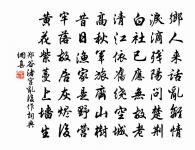 鄉人來話亂離情
淚滴殘陽問楚荆
白社已應無故老
清江依舊繞空城
高秋軍旅齊山樹
昔日漁家是野營
牢落故居灰燼後
黄花紫蔓上墻生
鄭谷渚宫亂後作詞典
網書